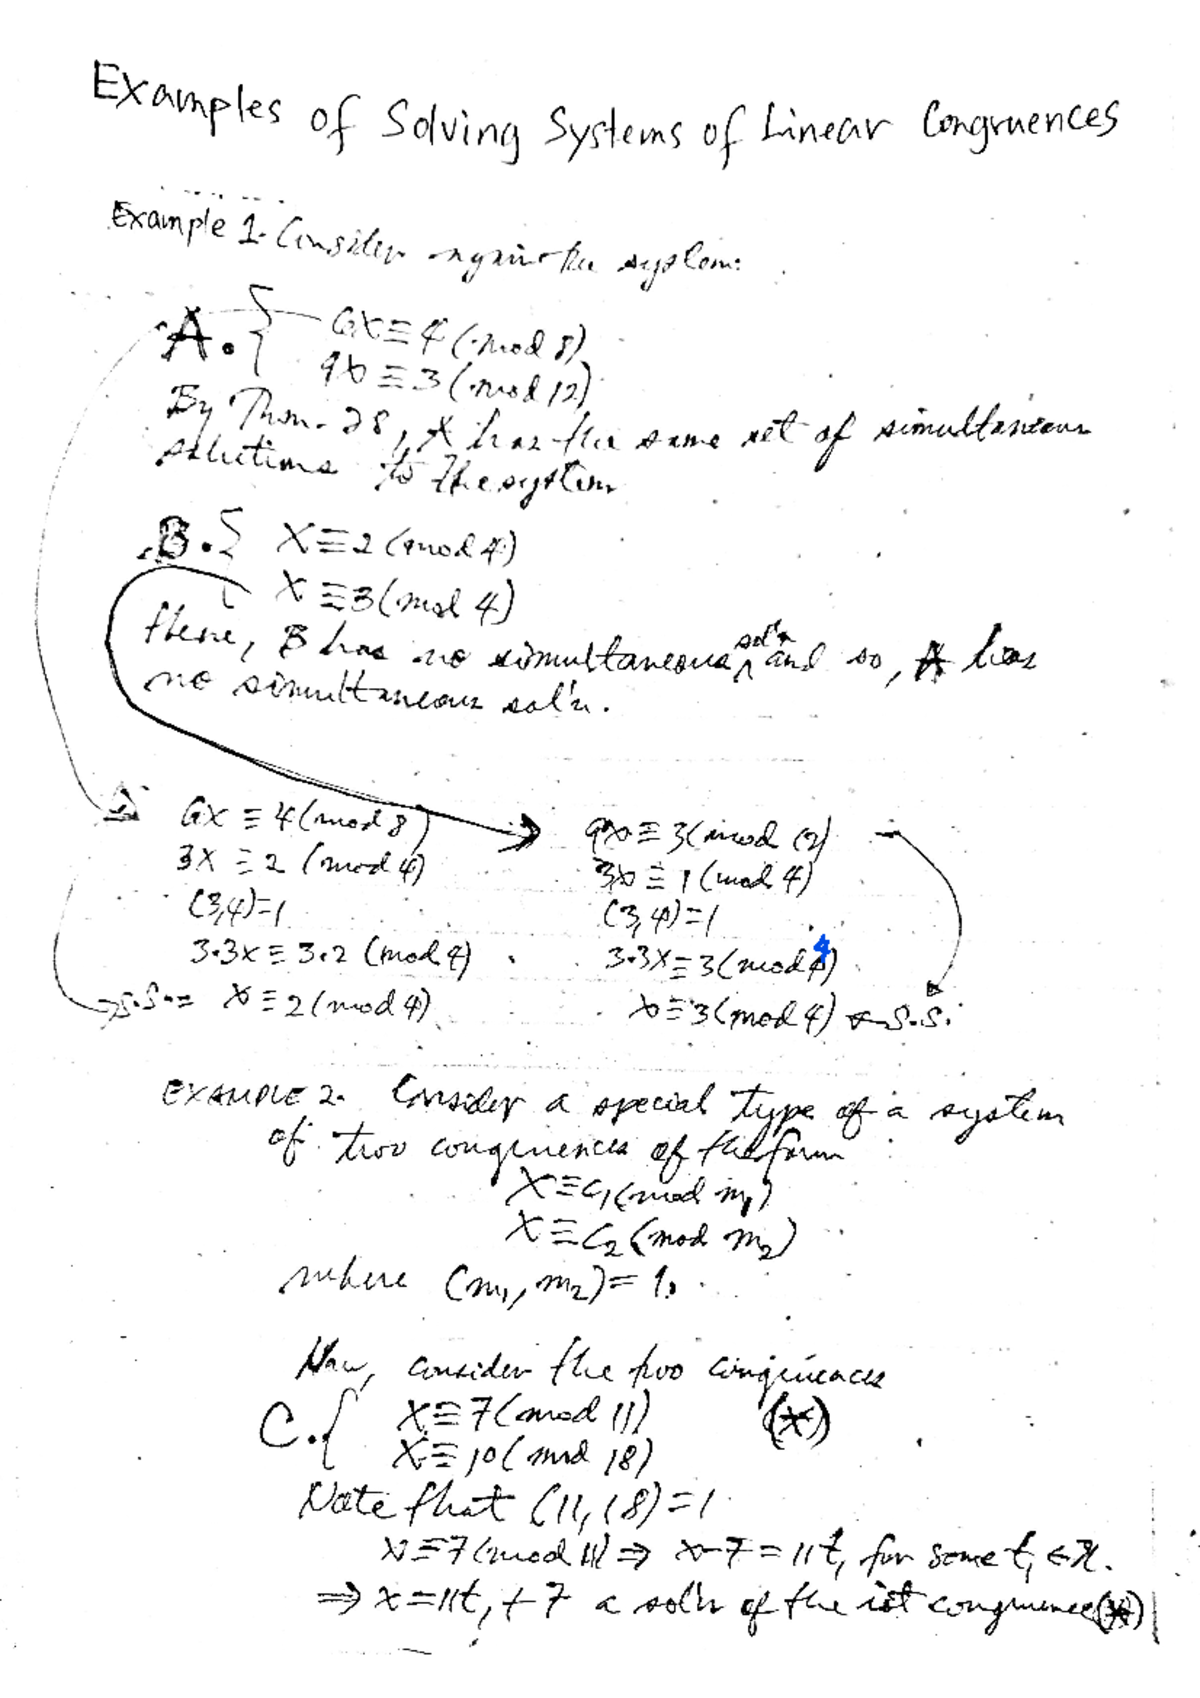 Examples of Solving Systems of Linear Congruences
Example 1. Consider again the system:
A. { 6x ≡ 4 (mod 8)
9x ≡ 3 (mod 12)
By Thm. 28, A has the same set of simultaneous
solutions to the system
B. { X ≡ 2 (mod 4)
X ≡ 3 (mod 4)
Here, B has no simultaneous sol'n and so, A has
no simultaneous sol'n.
6x ≡ 4 (mod 8) 9x ≡ 3 (mod 12)
3x ≡ 2 (mod 4) 3x ≡ 1 (mod 4)
(3,4)=1 (3,4)=1
3·3x ≡ 3·2 (mod 4) 3·3x ≡ 3 (mod 4)
S.S. = x ≡ 2 (mod 4) x ≡ 3 (mod 4) S.S.
EXAMPLE 2. Consider a special type of a system
of two congruences of the form
X ≡ C₁ (mod m₁)
X ≡ C₂ (mod m₂)
where (m₁, m₂) = 1.
Now, consider the two congruences
C. { X ≡ 7 (mod 11) (*)
X ≡ 10 (mod 18)
Note that (11, 18) = 1
x ≡ 7 (mod 11) ⇒ x-7 = 11t₁ for some t₁ ∈ Z.
⇒ x = 11t₁ + 7 a sol'n of the 1st congruence (*)